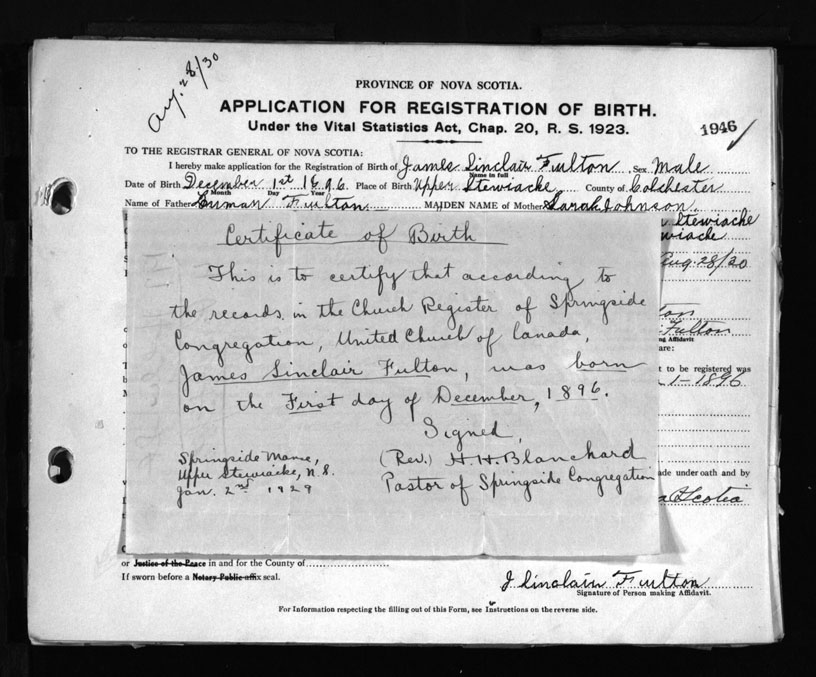 Aug. 28/30
PROVINCE OF NOVA SCOTIA.
APPLICATION FOR REGISTRATION OF BIRTH.
Under the Vital Statistics Act, Chap. 20, R. S. 1923.
1946
TO THE REGISTRAR GENERAL OF NOVA SCOTIA:
I hereby make application for the Registration of Birth of James Sinclair Fulton Sex Male
Name in full
Date of Birth December 1st 1896. Place of Birth Upper Stewiacke County of Colchester
Month Day Year
Name of Father Luman Fulton MAIDEN NAME of Mother Sarah Johnson
Stewiacke
wiacke
Aug. 28/30
Certificate of Birth
This is to certify that according to
the records in the Church Register of Springside
Congregation, United Church of Canada,
James Sinclair Fulton, was born
on the First day of December, 1896.
Signed,
Springside Manse, (Rev.) H. H. Blanchard
Upper Stewiacke, N.S. Pastor of Springside Congregation
Jan. 2nd 1929
ton
Fulton
ng Affidavit
are:
t to be registered was
1-1896
ade under oath and by
a Scotia
or Justice of the Peace in and for the County of
If sworn before a Notary Public affix seal.
J. Sinclair Fulton
Signature of Person making Affidavit.
For Information respecting the filling out of this Form, see Instructions on the reverse side.